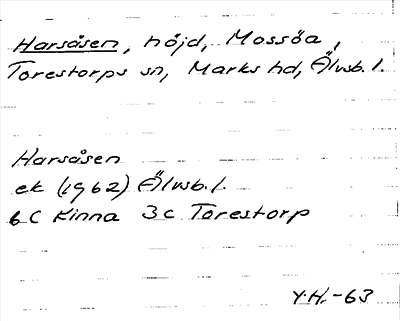 Harsåsen, höjd, Mossöa,
Torestorps sn, Marks hd, Älvsb. l.
Harsåsen
ek (1962) Älvsb. l.
6C Kinna 3c Torestorp
Y.H.-63